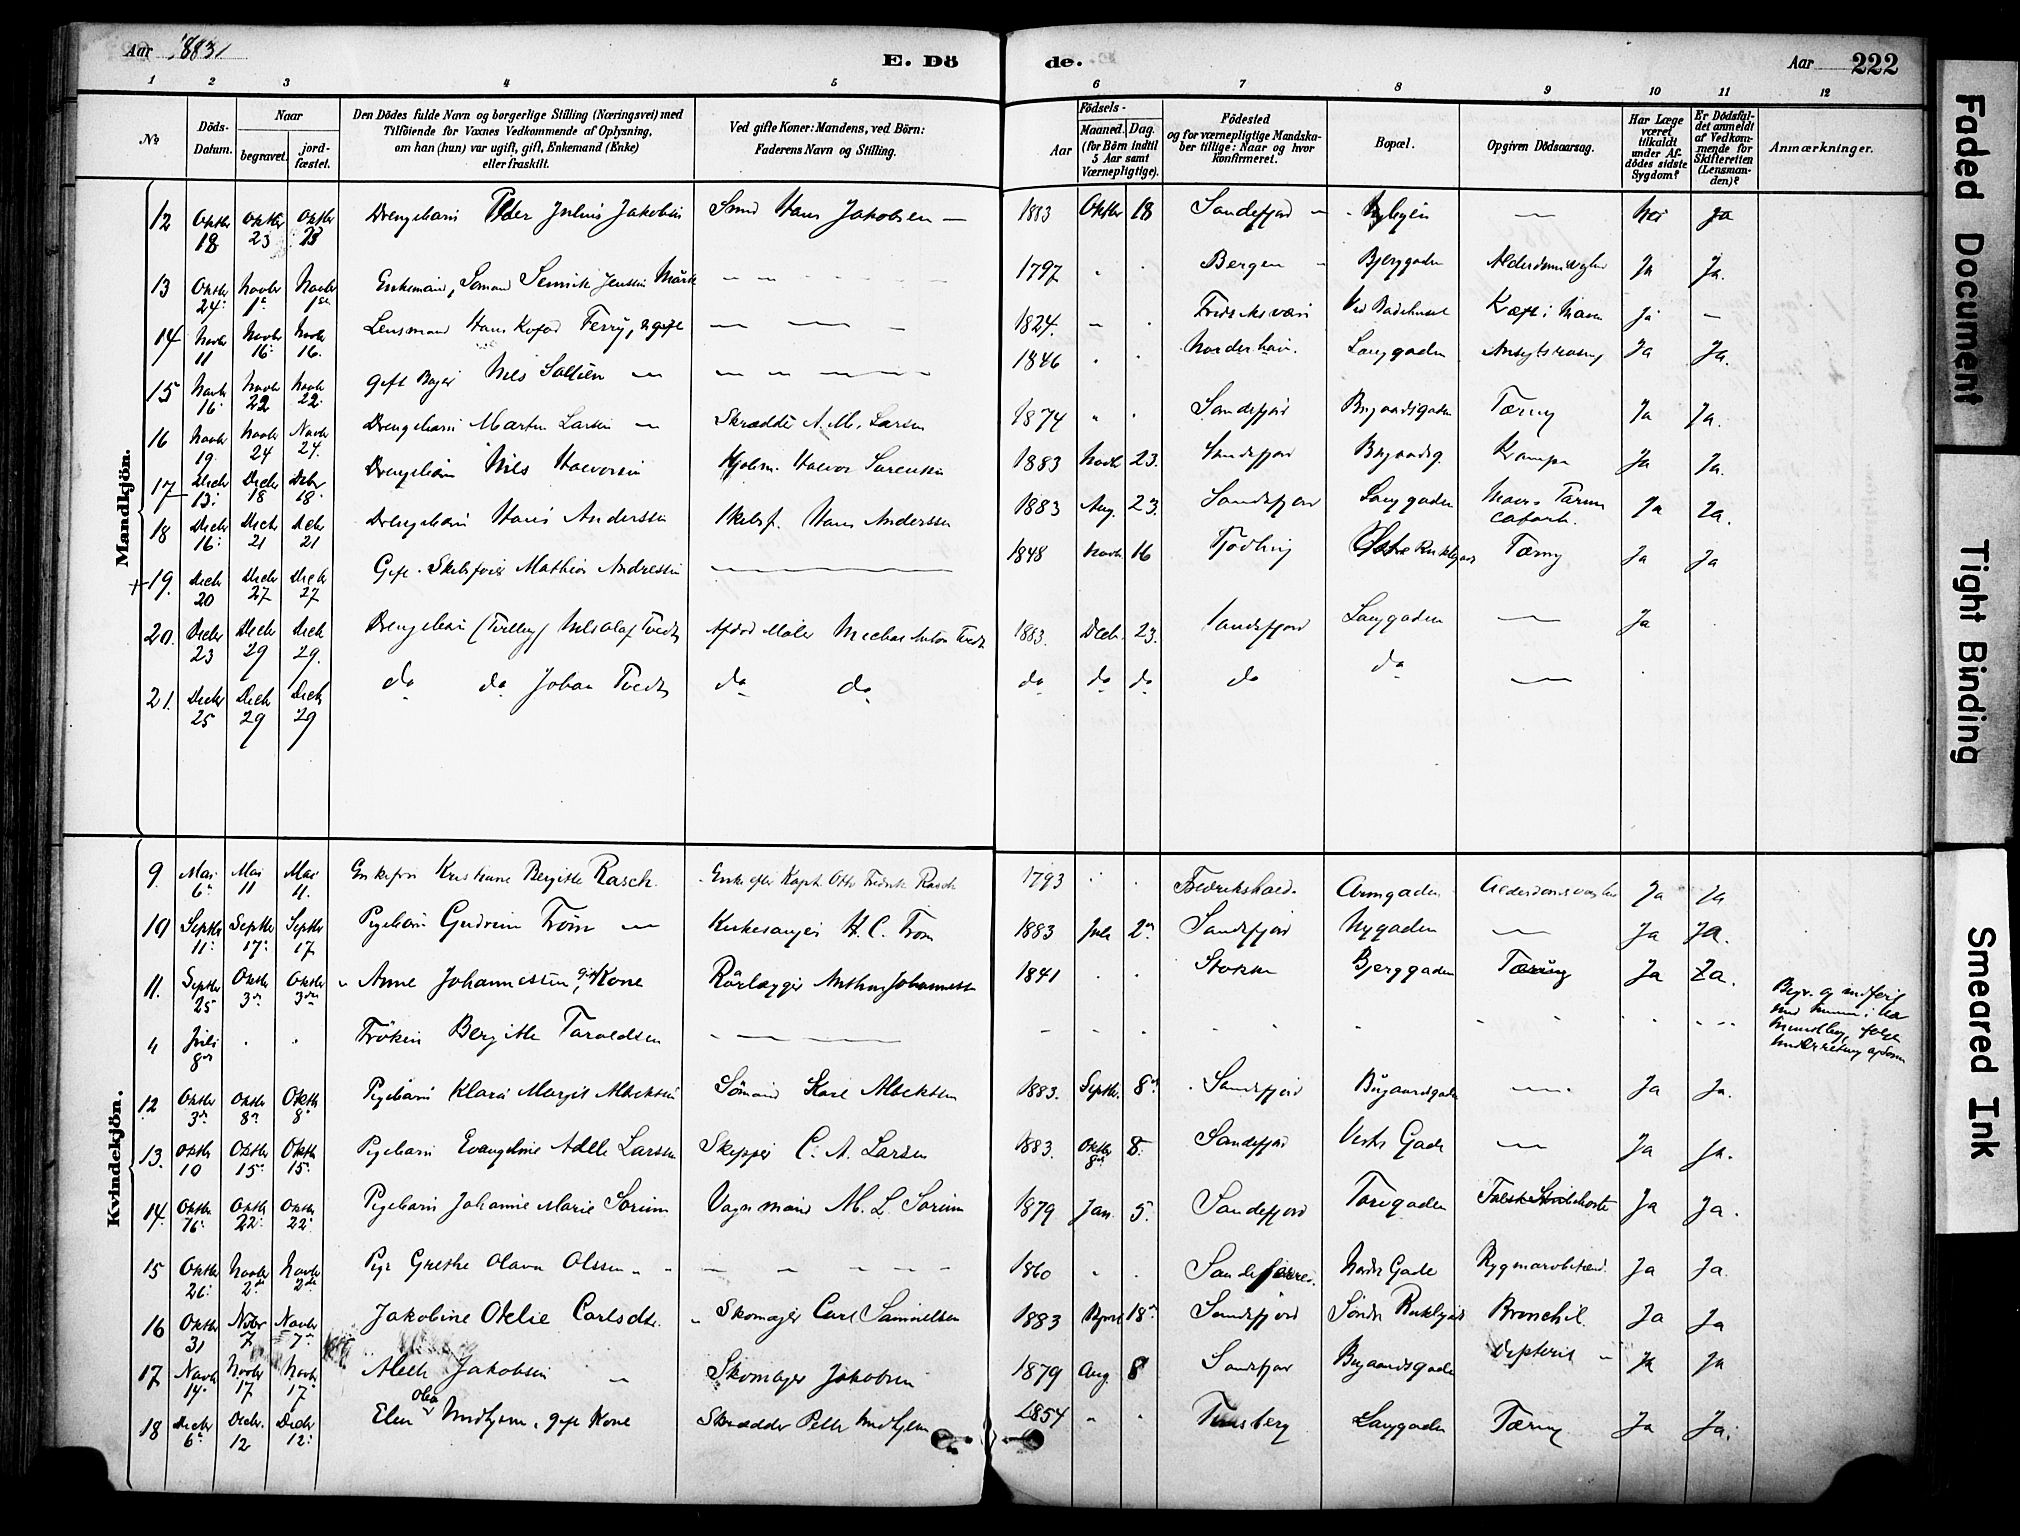 Aar 1883
E. Dö
de.
Aar 222
1 2 3 4 5 6 7 8 9 10 11 12
No
Döds-Datum.
Naar
begravet.
jord-fæstet.
Den Dödes fulde Navn og borgerlige Stilling (Næringsvei) med
Tilföiende for Voxnes Vedkommende af Oplysning,
om han (hun) var ugift, gift, Enkemand (Enke)
eller fraskilt.
Ved gifte Koner: Mandens, ved Börn:
Faderens Navn og Stilling.
Aar
Födsels-
Maaned. Dag.
(for Börn indtil
5 Aar samt
Værnepligtige).
Födested
og for værnepligtige Mandska-
ber tillige: Naar og hvor
konfirmeret.
Bopæl.
Opgiven Dödsaarsag.
Har Læge
været
tilkaldt
under Af-
dödes sidste
Sygdom?
Er Dödsfal-
det anmeldt
af Vedkom-
mende for
Skifteretten
(Lensman-
den)?
Anmærkninger.
Mandkjön.
12 Oktbr 18 Oktbr 23 Oktbr 23 Drengebarn Peder Julius Jakobsen Smed Hans Jakobsen — 1883 Oktbr 18 Sandefjord — — Nei Ja
13 Oktbr 24 Novbr 1 Novbr 1 Enkemand, Sömand Jensen — — 1797 Bergen Bjerggaden Ja Ja.
14 Novbr 11 Novbr 16 Novbr 16. Lensmand Hans Ferry, gift — — — 1824. — Ved Badehuset Kræft i Maven Ja —
15 Novbr 16 Novbr 22 Novbr 22 gift Nils — — — 1846 Norderhov. Langgaden Ja Ja.
16 Novbr 19. Novbr 24 Novbr 24. Drengebarn Martin Larsen — Skrædder A. M. Larsen 1874 Sandefjord Bugaardsgaden Tæring Ja Ja.
17 Decbr 13 Decbr 18 Decbr 18 Drengebarn Nils Halvorsen Halvor Sörensen 1883 Novbr 23. Sandefjord Bugaardsg. Krampe Ja Ja.
18 Decbr 16 Decbr 21 Decbr 21 Drengebarn Hans Anderssen Skibsf. Hans Anderssen 1883 Aug. 23. Sandefjord Langgaden Mave- Tarm catarrh. Ja Ja.
+19. Decbr 20 Decbr 27 Decbr 27 Gift. Skibsförer Mathias Andresen — 1848 Novbr 16 Tjödling Tæring Ja Ja
20. Decbr 23 Decbr 29 Decbr 29. Drengebarn (Tvilling) Nils Olaf Tvedt Afdöd Maler Anton Tvedt 1883. Decbr. 23. Sandefjord Langgaden — Ja
21. Decbr 25 Decbr 29 Decbr 29 do do Johan Tvedt do do do do do do do —
Kvindekjön.
9. Mai 6 Mai 11 Mai 11. Enkefru Kristiane Bergitte Rasch. Enke efter Kapt. Otto Fredrik Rasch 1793 Fredrikshald. Ja Ja
10 Septbr 11 Septbr 17 Septbr 17 Pigebarn Gudrun Trom — Kirkesanger H. C. Trom 1883 Juli 2 Sandefjord Nygaden — Ja Ja.
11. Septbr 25 Oktbr 3 Oktbr 3 Anne Johannessen, gift Kone Rörlægger Anthon Johannessen 1841 Stokke Bjerggaden Tæring Ja Ja.
4 Juli 8 Fröken Bergitte Taraldsen — — —
12 Oktbr 3 Oktbr 8 Oktbr 8 Pigebarn Klara Margit Albertsen Sömand Karl Albertsen 1883. Septbr. 8 Sandefjord Bugaardsgaden — Ja Ja.
13. Oktbr 10 Oktbr 15 Oktbr 15 Pigebarn Evangeline Adele Larsen Skipper C. A. Larsen 1883. Oktbr 8. Sandefjord Vestre Gade — Ja Ja.
14. Oktbr 16 Oktbr 22 Oktbr 22 Pigebarn Johanne Marie Sörum Vognmand M. L. Sörum 1879 Jan. 5. Sandefjord Torvgaden Falsk Strubehoste Ja Ja.
15 Oktbr 26 Novbr 2 Novbr 2 Pige Grethe Olava Olsen — — — 1860 Nordre Gade Ja Ja.
16 Oktbr 31 Novbr 7 Novbr 7 Jakobine Otelie Carlsdtr. Skomager Carl Samuelsen 1883 18 Sandefjord Söndre Bronchit. Ja Ja
17 Novbr 14 Novbr 17 Novbr 17 Jakobsen Skomager Jakobsen 1879 Aug. 8 Sandefjord Bugaardsgade Ja Ja
18 Decbr 6 Decbr. 12 Decbr 12 Elen Olea gift Kone Skrædder 1854 Tönsberg Langgaden Tæring Ja Ja.
Faded Document
Tight Binding
Smeared Ink